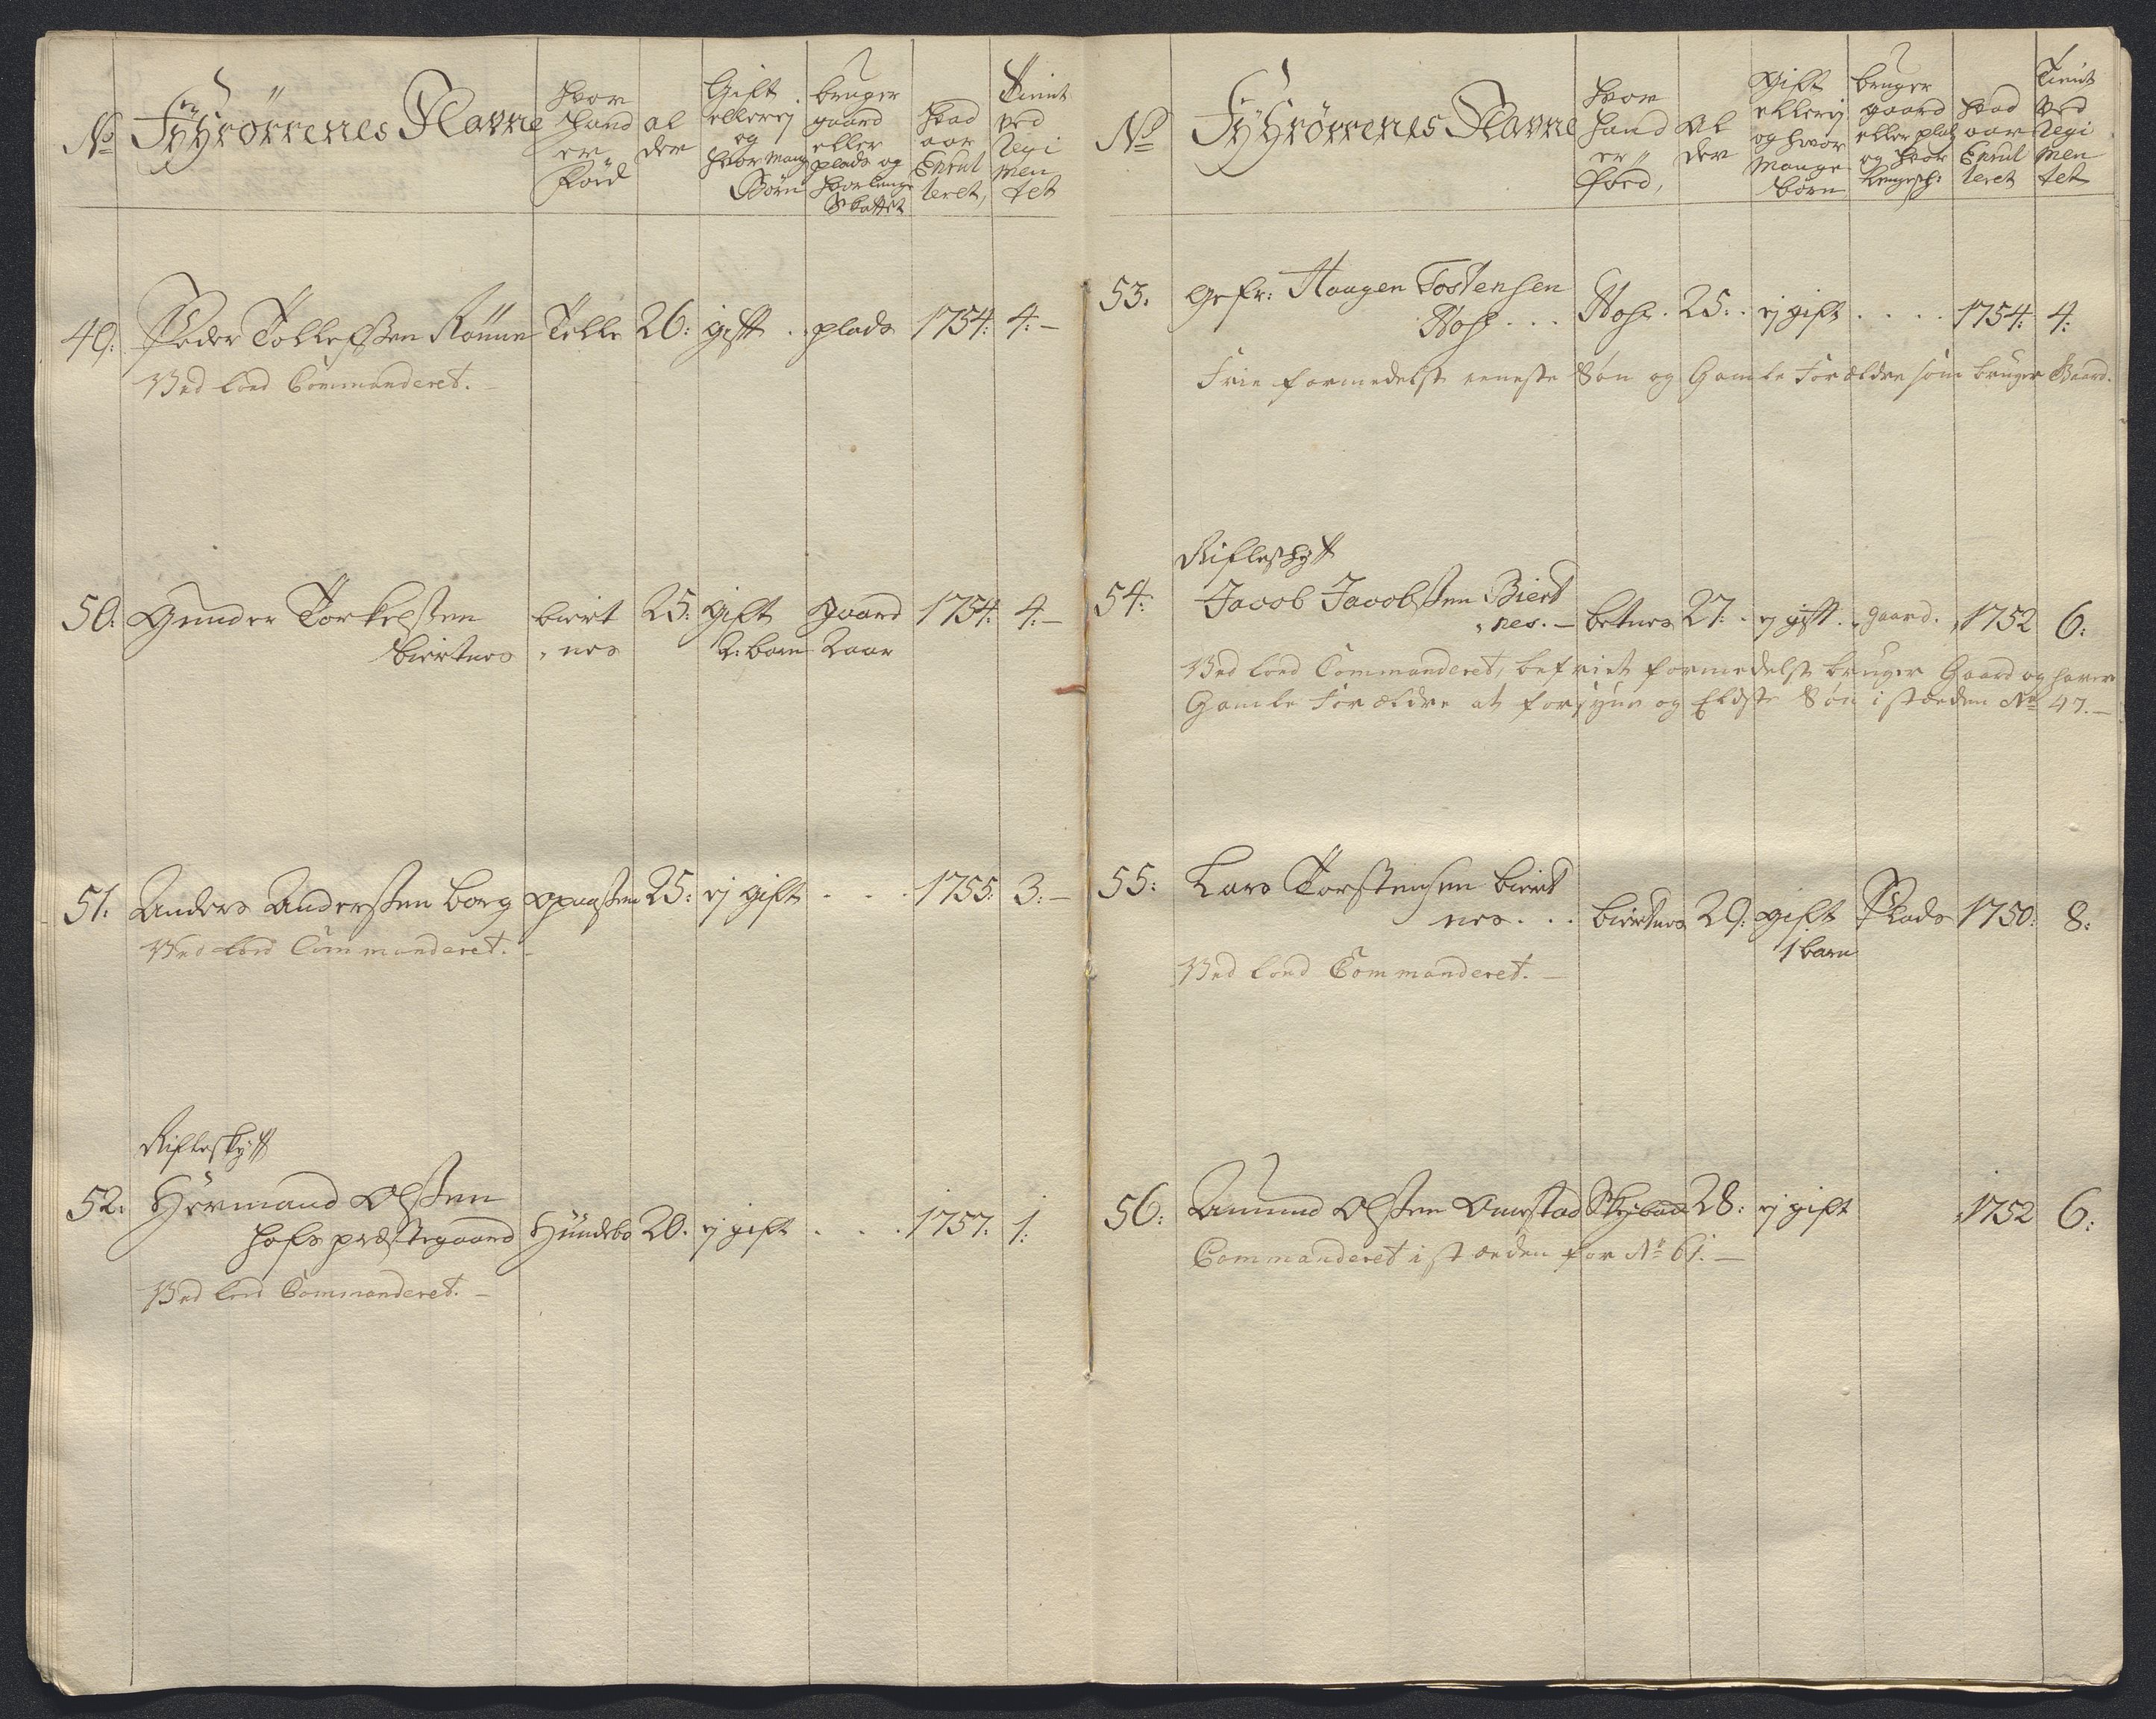 No
Fÿhrörrenes Navne
hvor
hand
er
född
al
der
Gift
eller ej
og
hvor mang
Börn
bruger
gaard
eller
plads og
hvor lenge
Skattet
hvad
aar
Enrul
leret,
Tient
ved
regi
men
tet
49:
Peder Tollefssen Rönne
Tille
26:
gift
plads
1754:
4:
Ved lord Commanderet.
50:
Gunder Torkelssen
biertnes
biert
nes
25:
gift
2: barn
gaard
2 aar
1754:
4:
51:
Anders Anderssen borg
25:
ej gift
1755:
3:
Ved lord Commanderet.
Rifleskÿtt
52:
Hermand Olssen
hofs præstegaard
Hundebo
20.
ej gift
1757:
1:
Ved lord Commanderet.
No
Fÿhrörrenes Navne
hvor
hand
er
föed,
al
der
gift
eller ej
og hvor
mange
börn
bruger
gaard
eller plads
og hvor
hvad
aar
Enrul
leret
Tient
ved
regi
men
tet
53.
Gefr: Haagen Tostensen
25:
ej gift
1754:
4:
Frie formedelst eeneste Sön og Gamle Forældre som bruger Gaard.
Rifleskÿtt
54:
Jacob Jacobssen Biert
nes.
betnes
27:
ej gift
gaard.
1752
6:
Ved lord Commanderet, befriet formedelst bruger Gaard og haver
Gamle Forældre at forsÿne og Eldste Sön i stæden No 47.
55:
Lars Torstensen biert
nes
biertnes
29:
gift
1 barn
Plads
1750:
8:
Ved lord Commanderet.
56:
Amund Olssen Omestad
28:
ej gift
1752
6:
Commanderet i stæden for No 61.